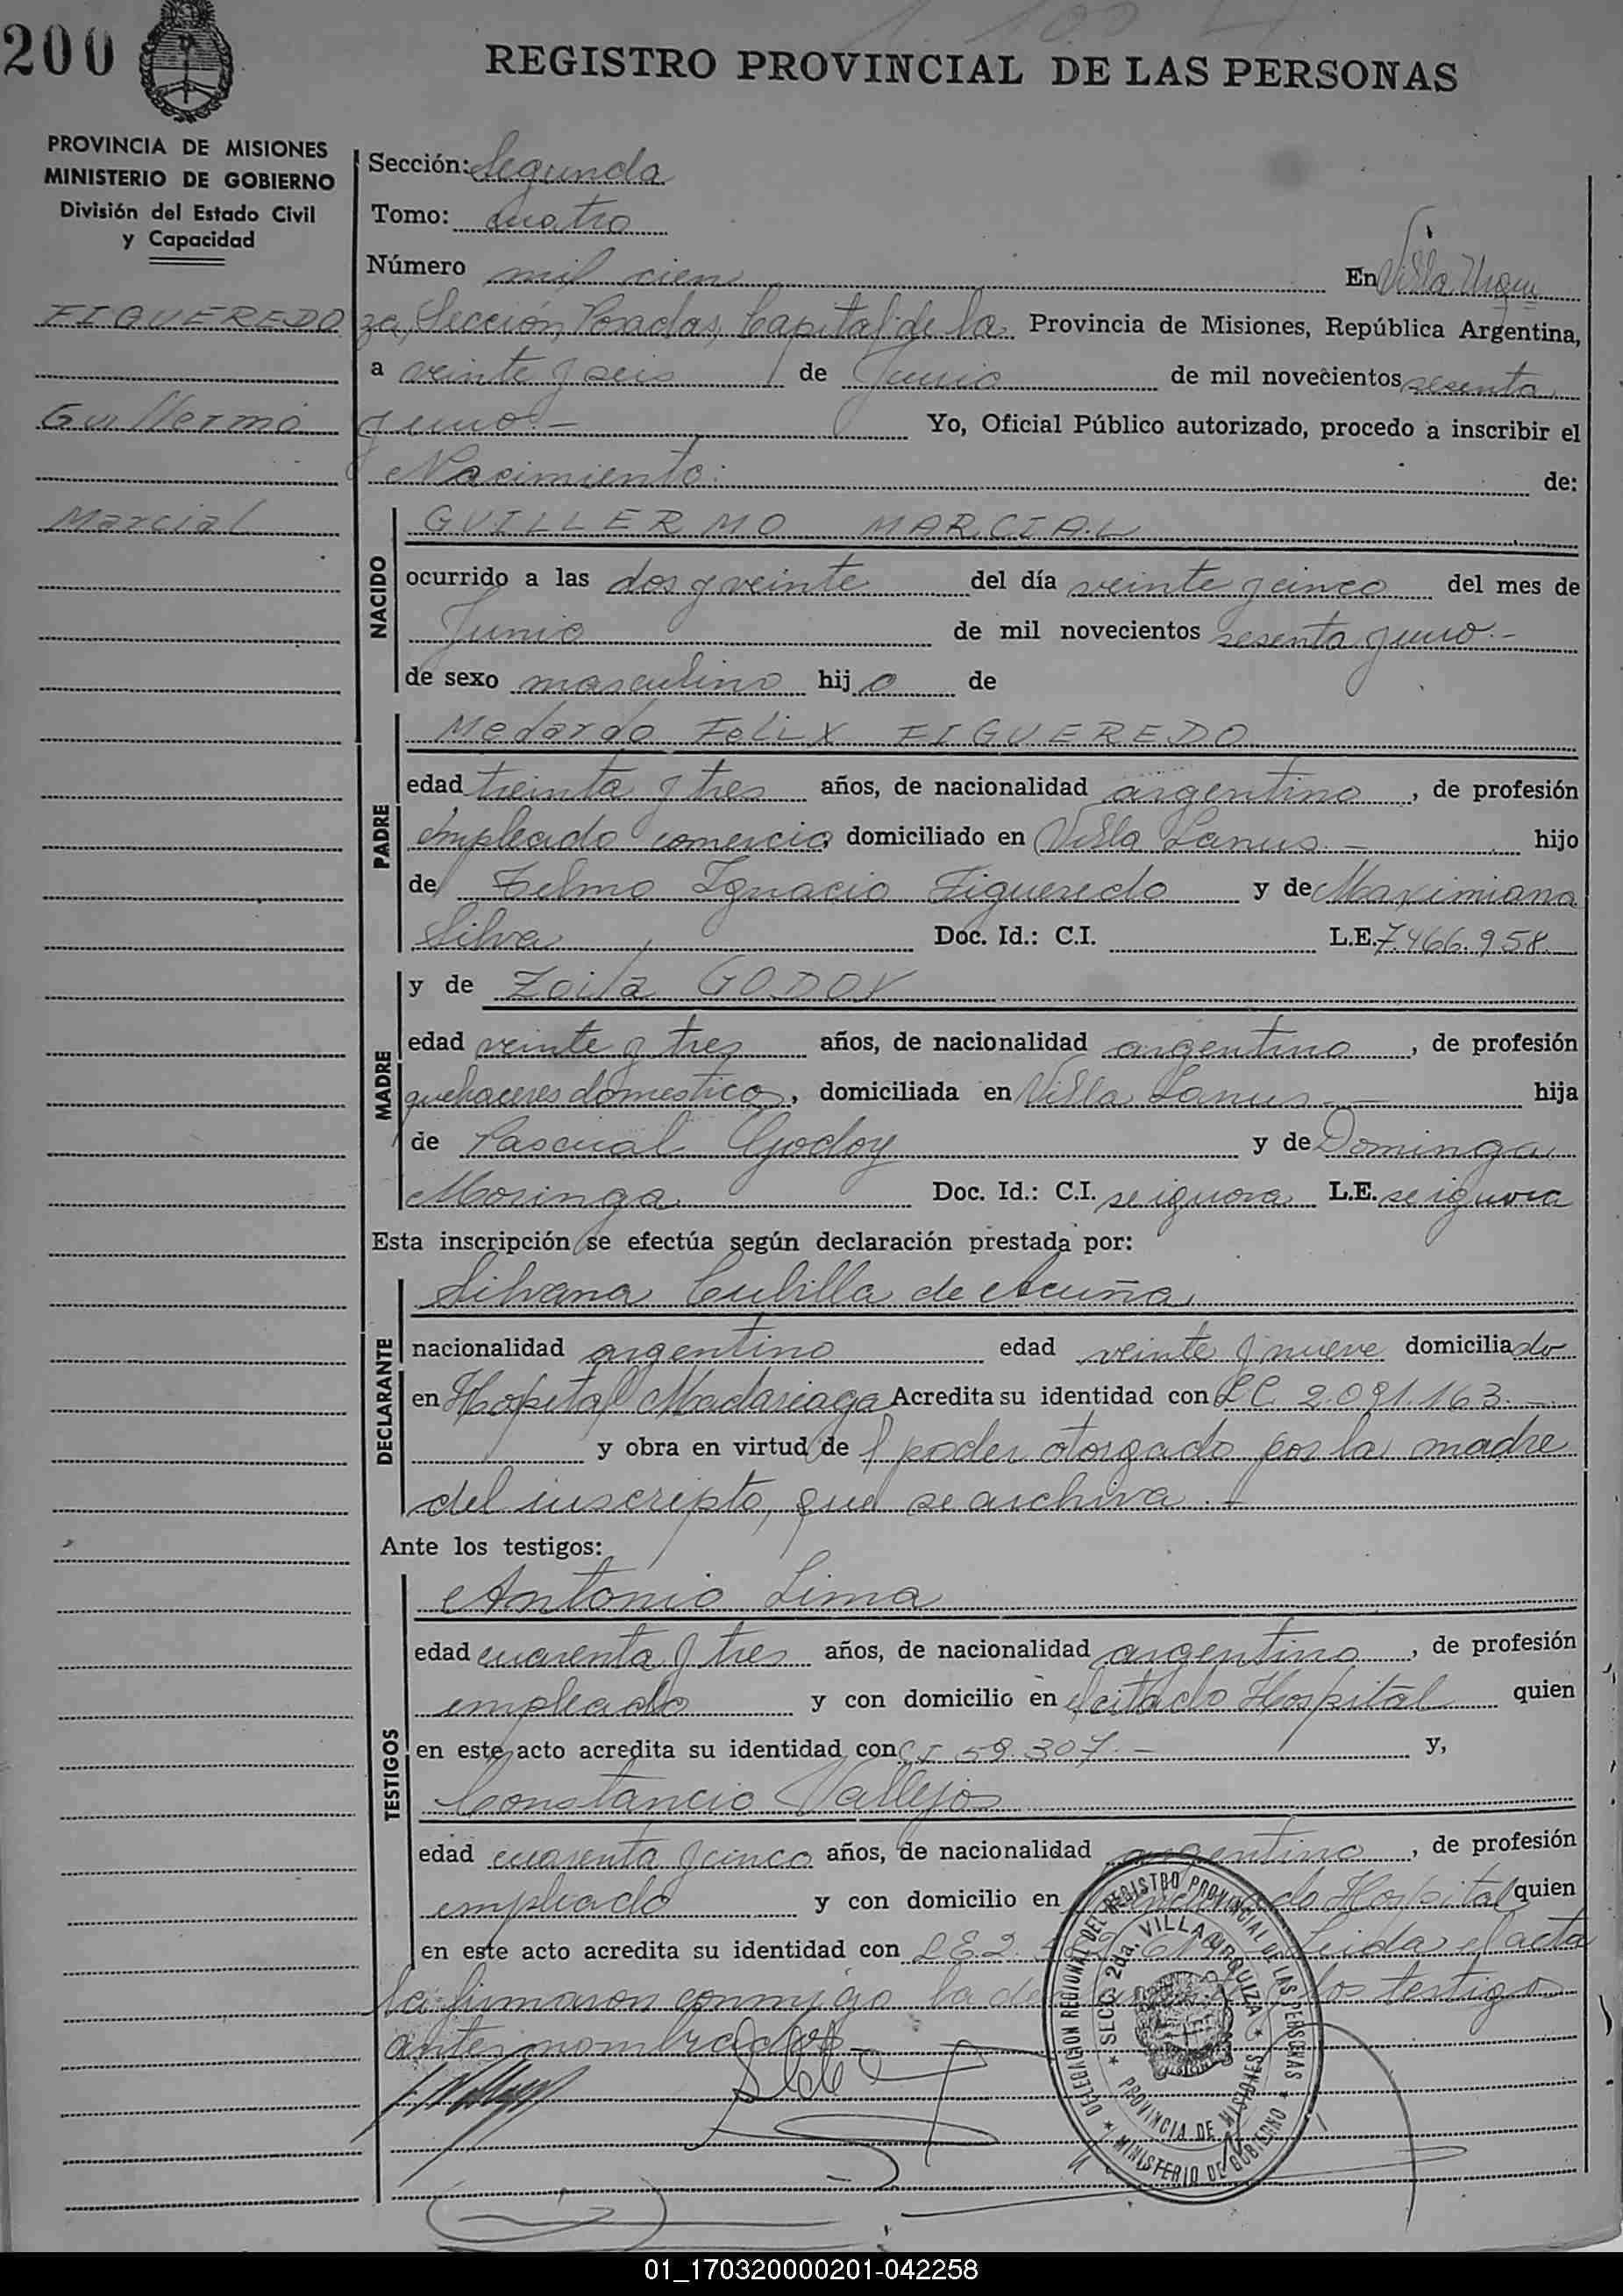 200
REGISTRO PROVINCIAL DE LAS PERSONAS
PROVINCIA DE MISIONES
MINISTERIO DE GOBIERNO
División del Estado Civil
y Capacidad
Sección: Segunda
Tomo: cuatro
Número mil cien En Villa Urqui
FIGUEREDO
za, Sección Posadas, Capital de la Provincia de Misiones, República Argentina,
a veinte y seis de Junio de mil novecientos sesenta
Guillermo
y uno.- Yo, Oficial Público autorizado, procedo a inscribir el
Nacimiento: de:
Marcial
NACIDO
GUILLERMO MARCIAL
ocurrido a las dos y veinte del día veinte y cinco del mes de
Junio de mil novecientos sesenta y uno.-
de sexo masculino hijo de
PADRE
Medardo FeliX FIGUEREDO
edad treinta y tres años, de nacionalidad argentino, de profesión
empleado comercio domiciliado en Villa Lanus.- hijo
de Telmo Ignacio Figueredo y de Maximiana
Silva Doc. Id.: C.I. L.E. 7.466.958
MADRE
y de Zoila GODOY
edad veinte y tres años, de nacionalidad argentino, de profesión
quehaceres domestico, domiciliada en Villa Lanus.- hija
de Pascual Godoy y de Dominga
Moringa Doc. Id.: C.I. se ignora L.E. se ignora
Esta inscripción se efectúa según declaración prestada por:
DECLARANTE
Silvana Cubilla de Acuña
nacionalidad argentino edad veinte y nueve domiciliado
en Hospital Madariaga Acredita su identidad con L.C. 2.091.163.-
y obra en virtud de l poder otorgado por la madre
del inscripto, que se archiva.-
Ante los testigos:
TESTIGOS
Antonio Lima
edad cuarenta y tres años, de nacionalidad argentino, de profesión
empleado y con domicilio en el citado Hospital quien
en este acto acredita su identidad con C.I 59.307.- y,
Constancio Vallejos
edad cuarenta y cinco años, de nacionalidad argentino, de profesión
empleado y con domicilio en Hospital quien
en este acto acredita su identidad con L.E. 2. Leida el acta
la firmaron conmigo la los testigo
antes nombrados.-
DELEGACION REGIONAL DEL REGISTRO PROVINCIAL DE LAS PERSONAS
SECC. 2da. VILLA URQUIZA
PROVINCIA DE MISIONES
MINISTERIO DE GOBIERNO
01_170320000201-042258